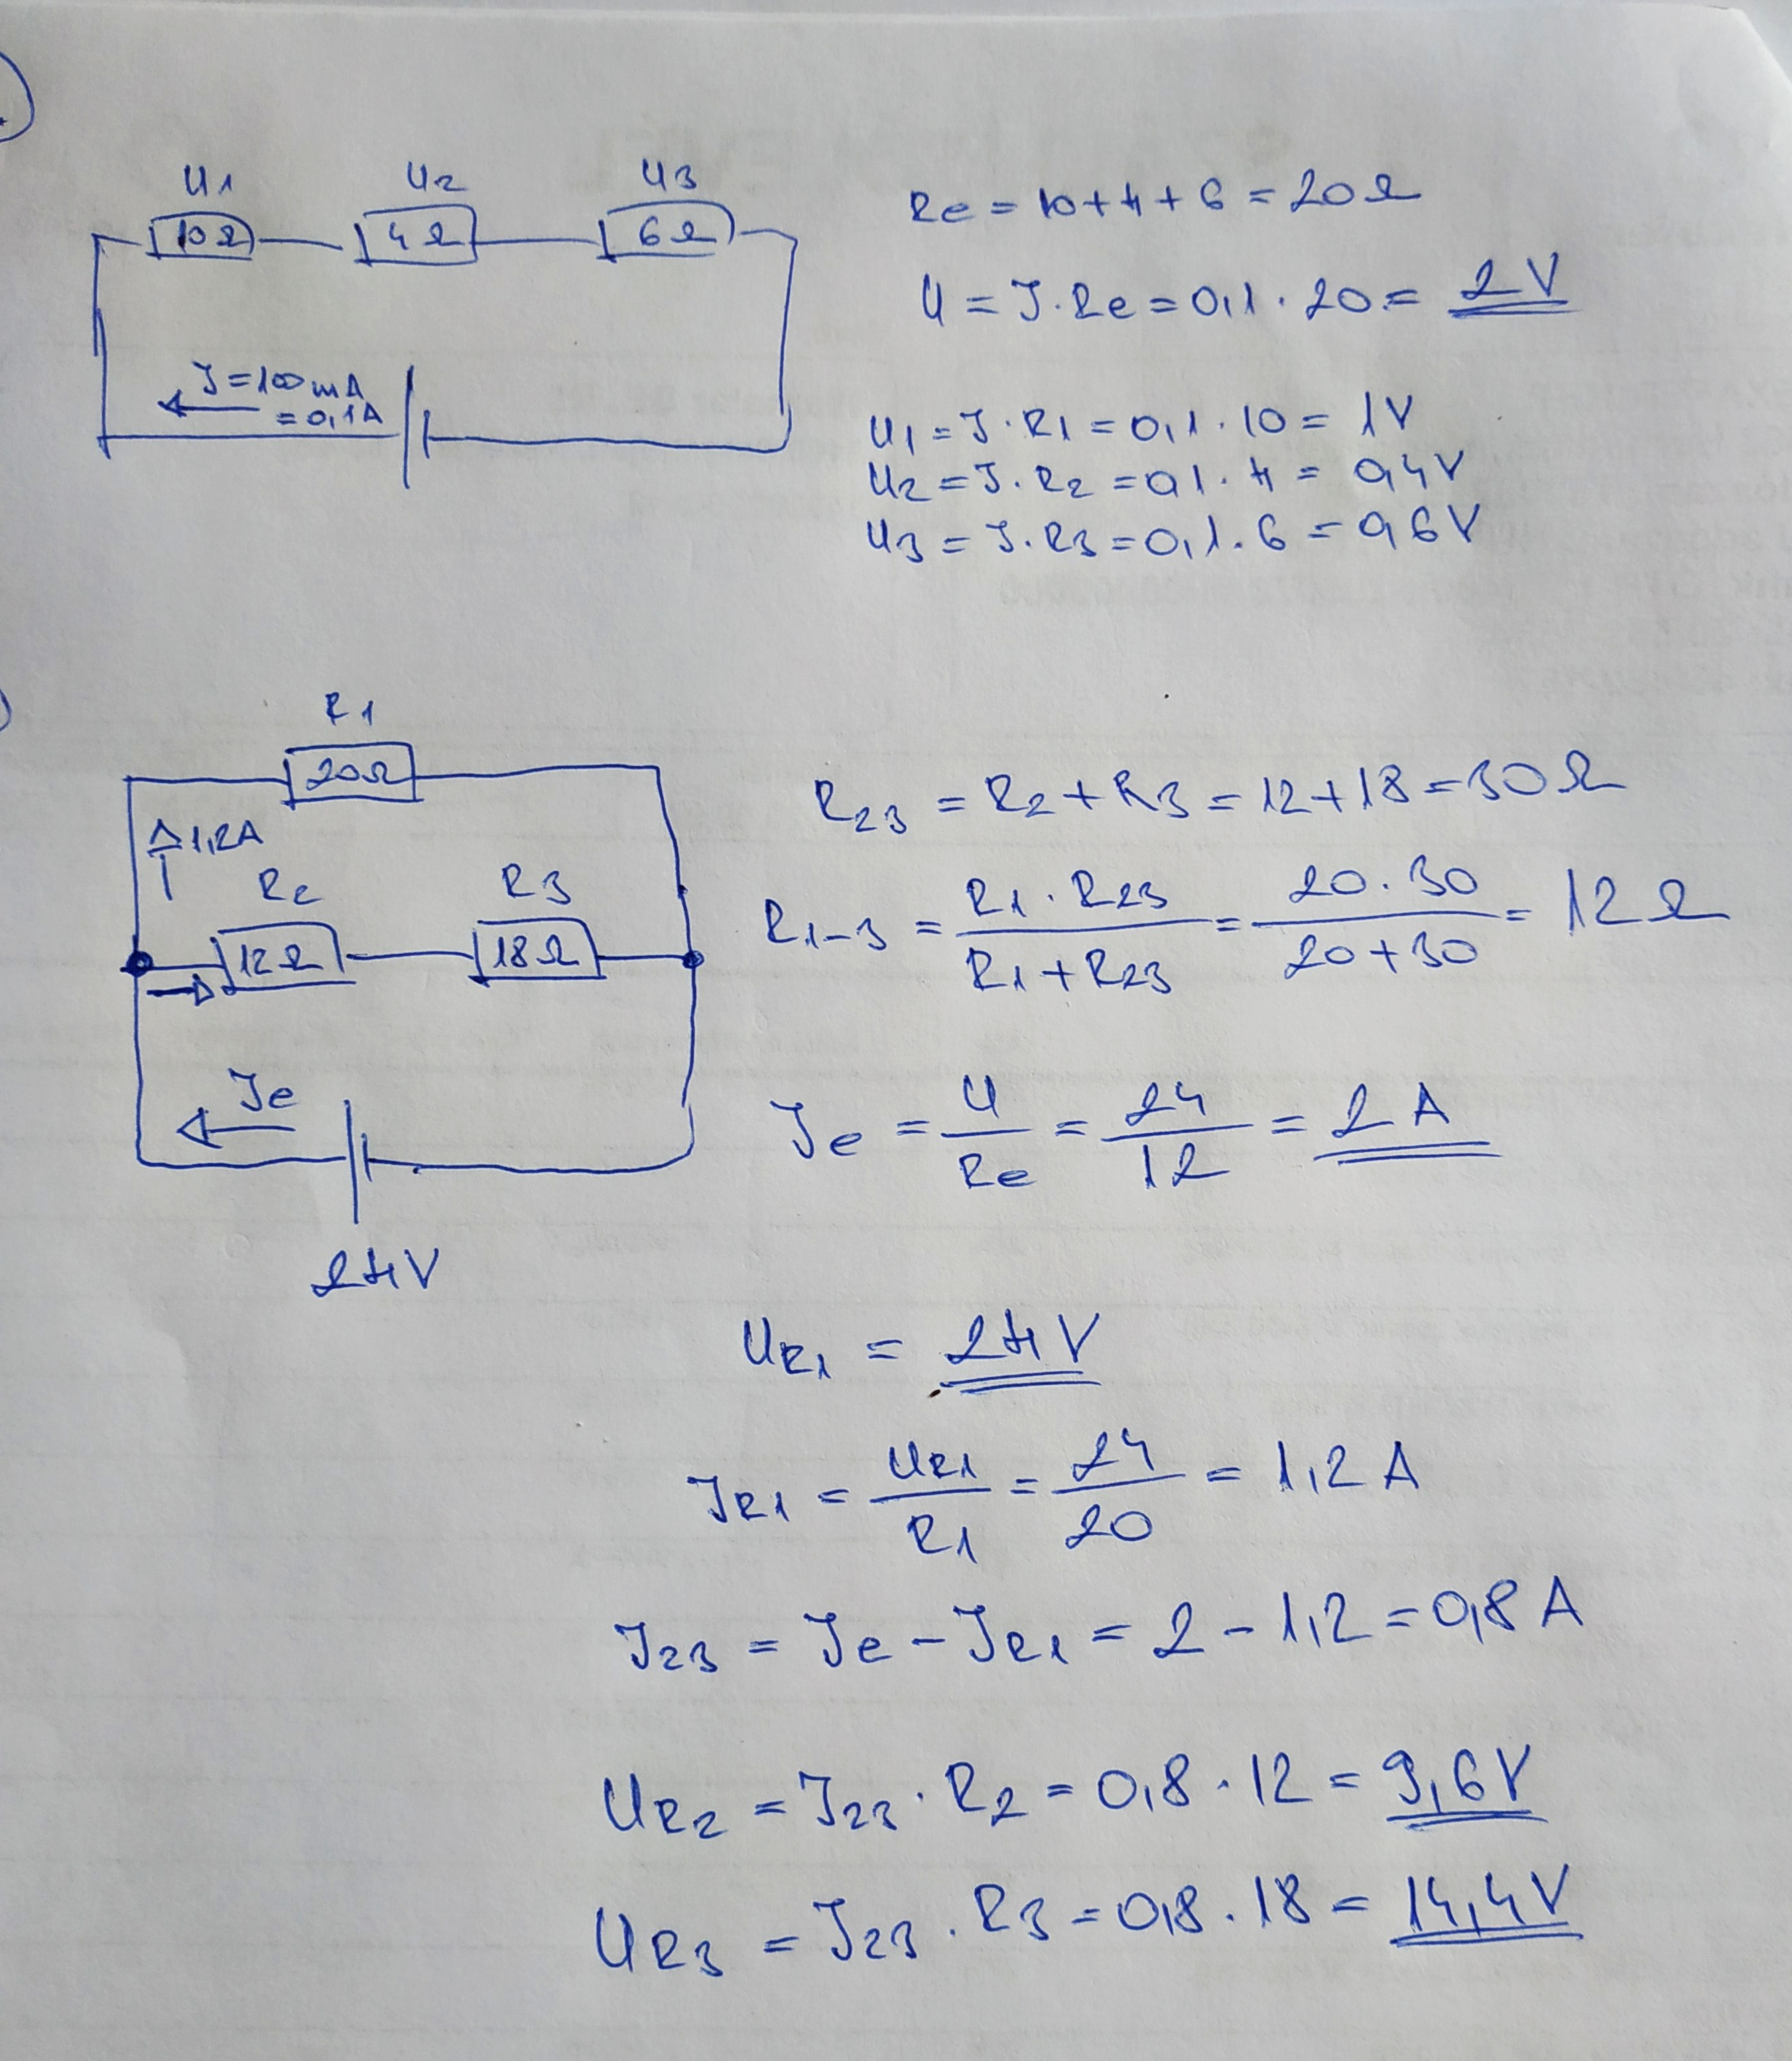 U1 U2 U3
10Ω 4Ω 6Ω
I=100mA
=0,1A
Re = 10+4+6 = 20Ω
U = I·Re = 0,1·20 = 2V
U1 = I·R1 = 0,1·10 = 1V
U2 = I·R2 = 0,1·4 = 0,4V
U3 = I·R3 = 0,1·6 = 0,6V
R1
20Ω
1,2A
R2 R3
12Ω 18Ω
Ie
24V
R23 = R2+R3 = 12+18 = 30Ω
R1-3 = R1·R23 / R1+R23 = 20·30 / 20+30 = 12Ω
Ie = U / Re = 24 / 12 = 2A
UR1 = 24V
IR1 = UR1 / R1 = 24 / 20 = 1,2A
I23 = Ie - IR1 = 2 - 1,2 = 0,8A
UR2 = I23·R2 = 0,8·12 = 9,6V
UR3 = I23·R3 = 0,8·18 = 14,4V